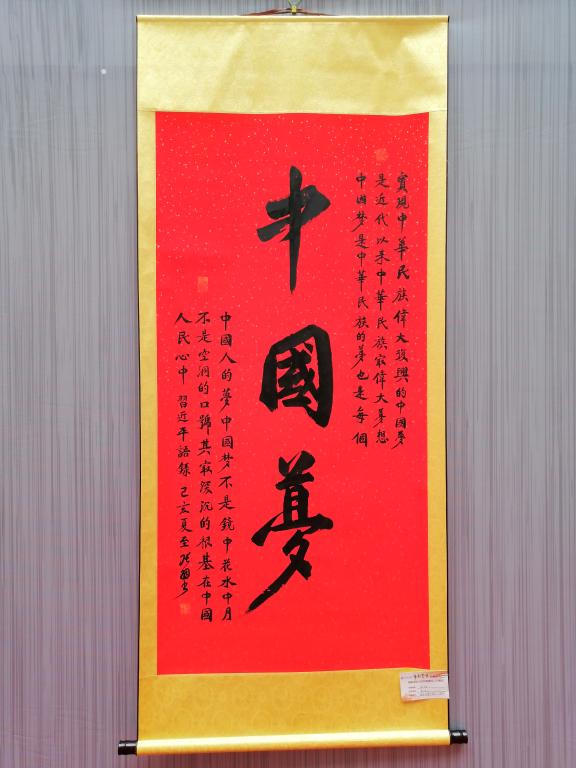 實現中華民族偉大復興的中國夢
是近代以来中華民族寂偉大夢想
中國梦是中華民族的夢也是每個
中國夢
中國人的夢中國梦不是鏡中花水中月
不是空洞的口號其寂深沉的根基在中國
人民心中 習近平語錄 己亥夏至